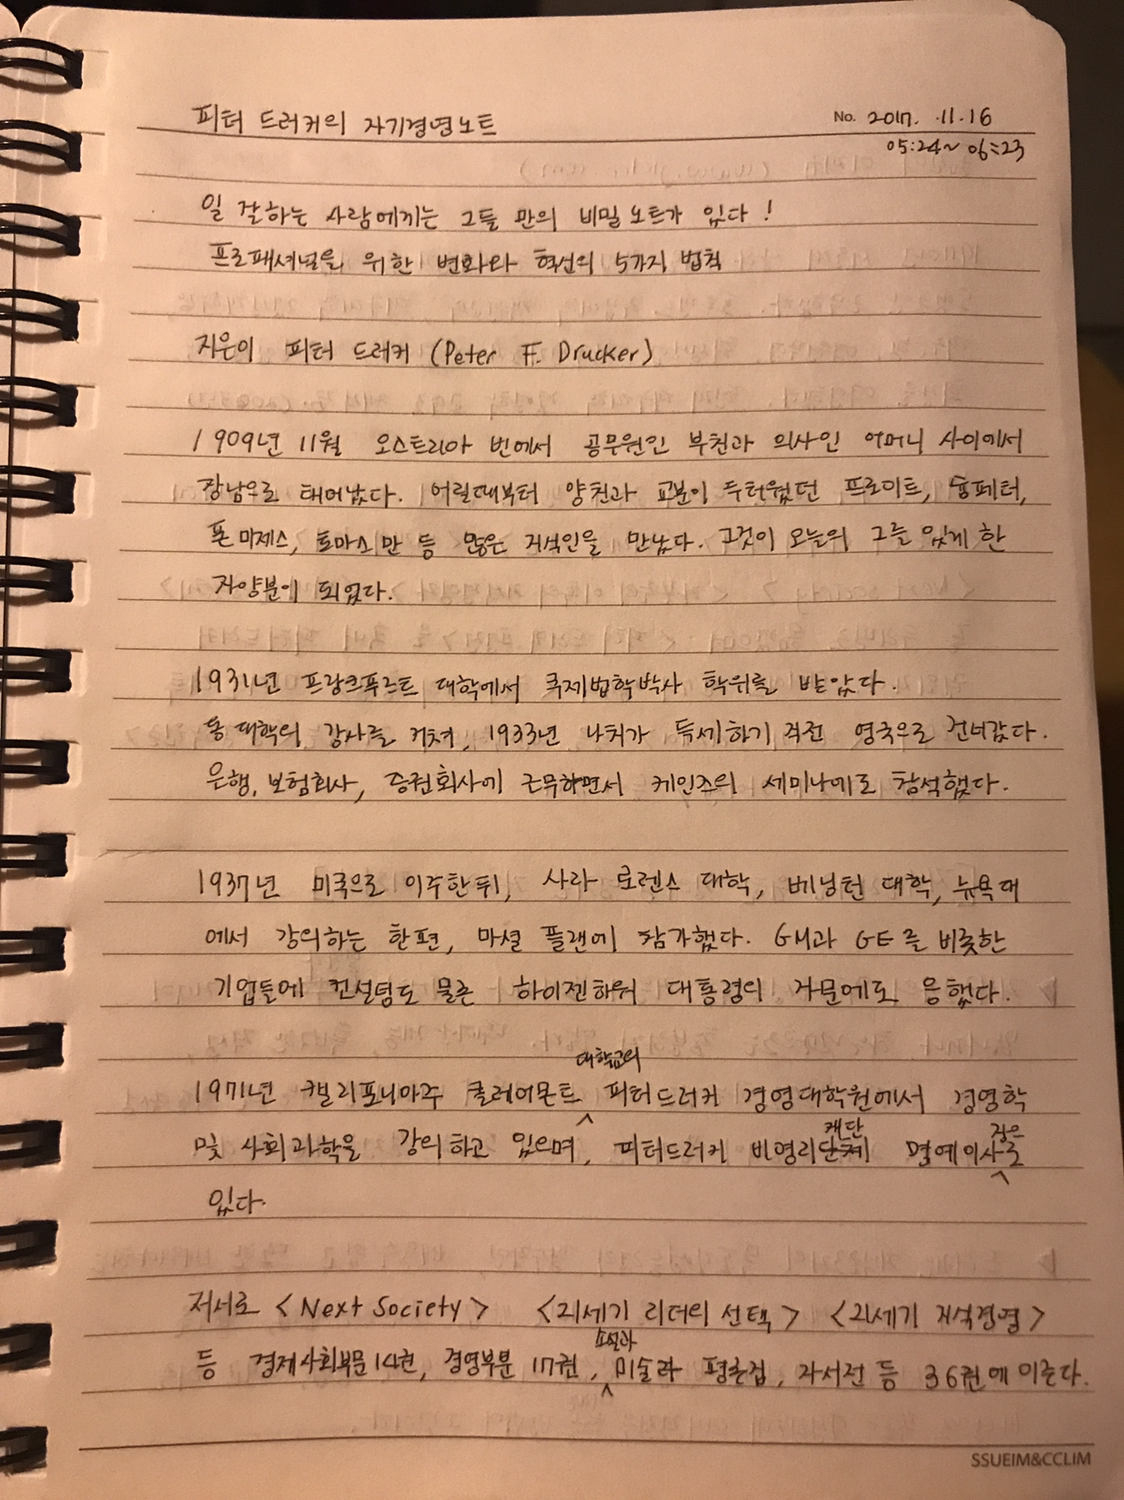 피터 드러커의 자기경영노트
No. 2017. 11.16
05:24~06:23
일 잘하는 사람에게는 그들 만의 비밀노트가 있다!
프로패셔널을 위한 변화와 혁신의 5가지 법칙
지은이 피터 드러커 (Peter F. Drucker)
1909년 11월 오스트리아 빈에서 공무원인 부친과 의사인 어머니 사이에서
장남으로 태어났다. 어릴때부터 양친과 교분이 두터웠던 프로이트, 슘페터,
폰 미제스, 토마스 만 등 많은 지식인을 만났다. 그것이 오늘의 그를 있게 한
자양분이 되었다.
1931년 프랑크푸르트 대학에서 국제법학박사 학위를 받았다.
동 대학의 강사를 거쳐, 1933년 나치가 득세하기 직전 영국으로 건너갔다.
은행, 보험회사, 증권회사에 근무하면서 케인즈의 세미나에도 참석했다.
1937년 미국으로 이주한 뒤, 사라 로렌스 대학, 베닝턴 대학, 뉴욕대
에서 강의하는 한편, 마셜 플랜에 참가했다. GM과 GE를 비롯한
기업들에 컨설팅도 물론 아이젠하워 대통령의 자문에도 응했다.
대학교의
1971년 캘리포니아주 클레어몬트 피터드러커 경영대학원에서 경영학
재단 직은
및 사회과학을 강의하고 있으며, 피터드러커 비영리단체 명예이사로
있다.
저서로 <Next Society> <21세기 리더의 선택> <21세기 지식경영>
소설과
등 경제사회부문 14권, 경영부문 17권, 미술과 평론집, 자서전 등 36권에 이른다.
SSUEIM&CCLIM